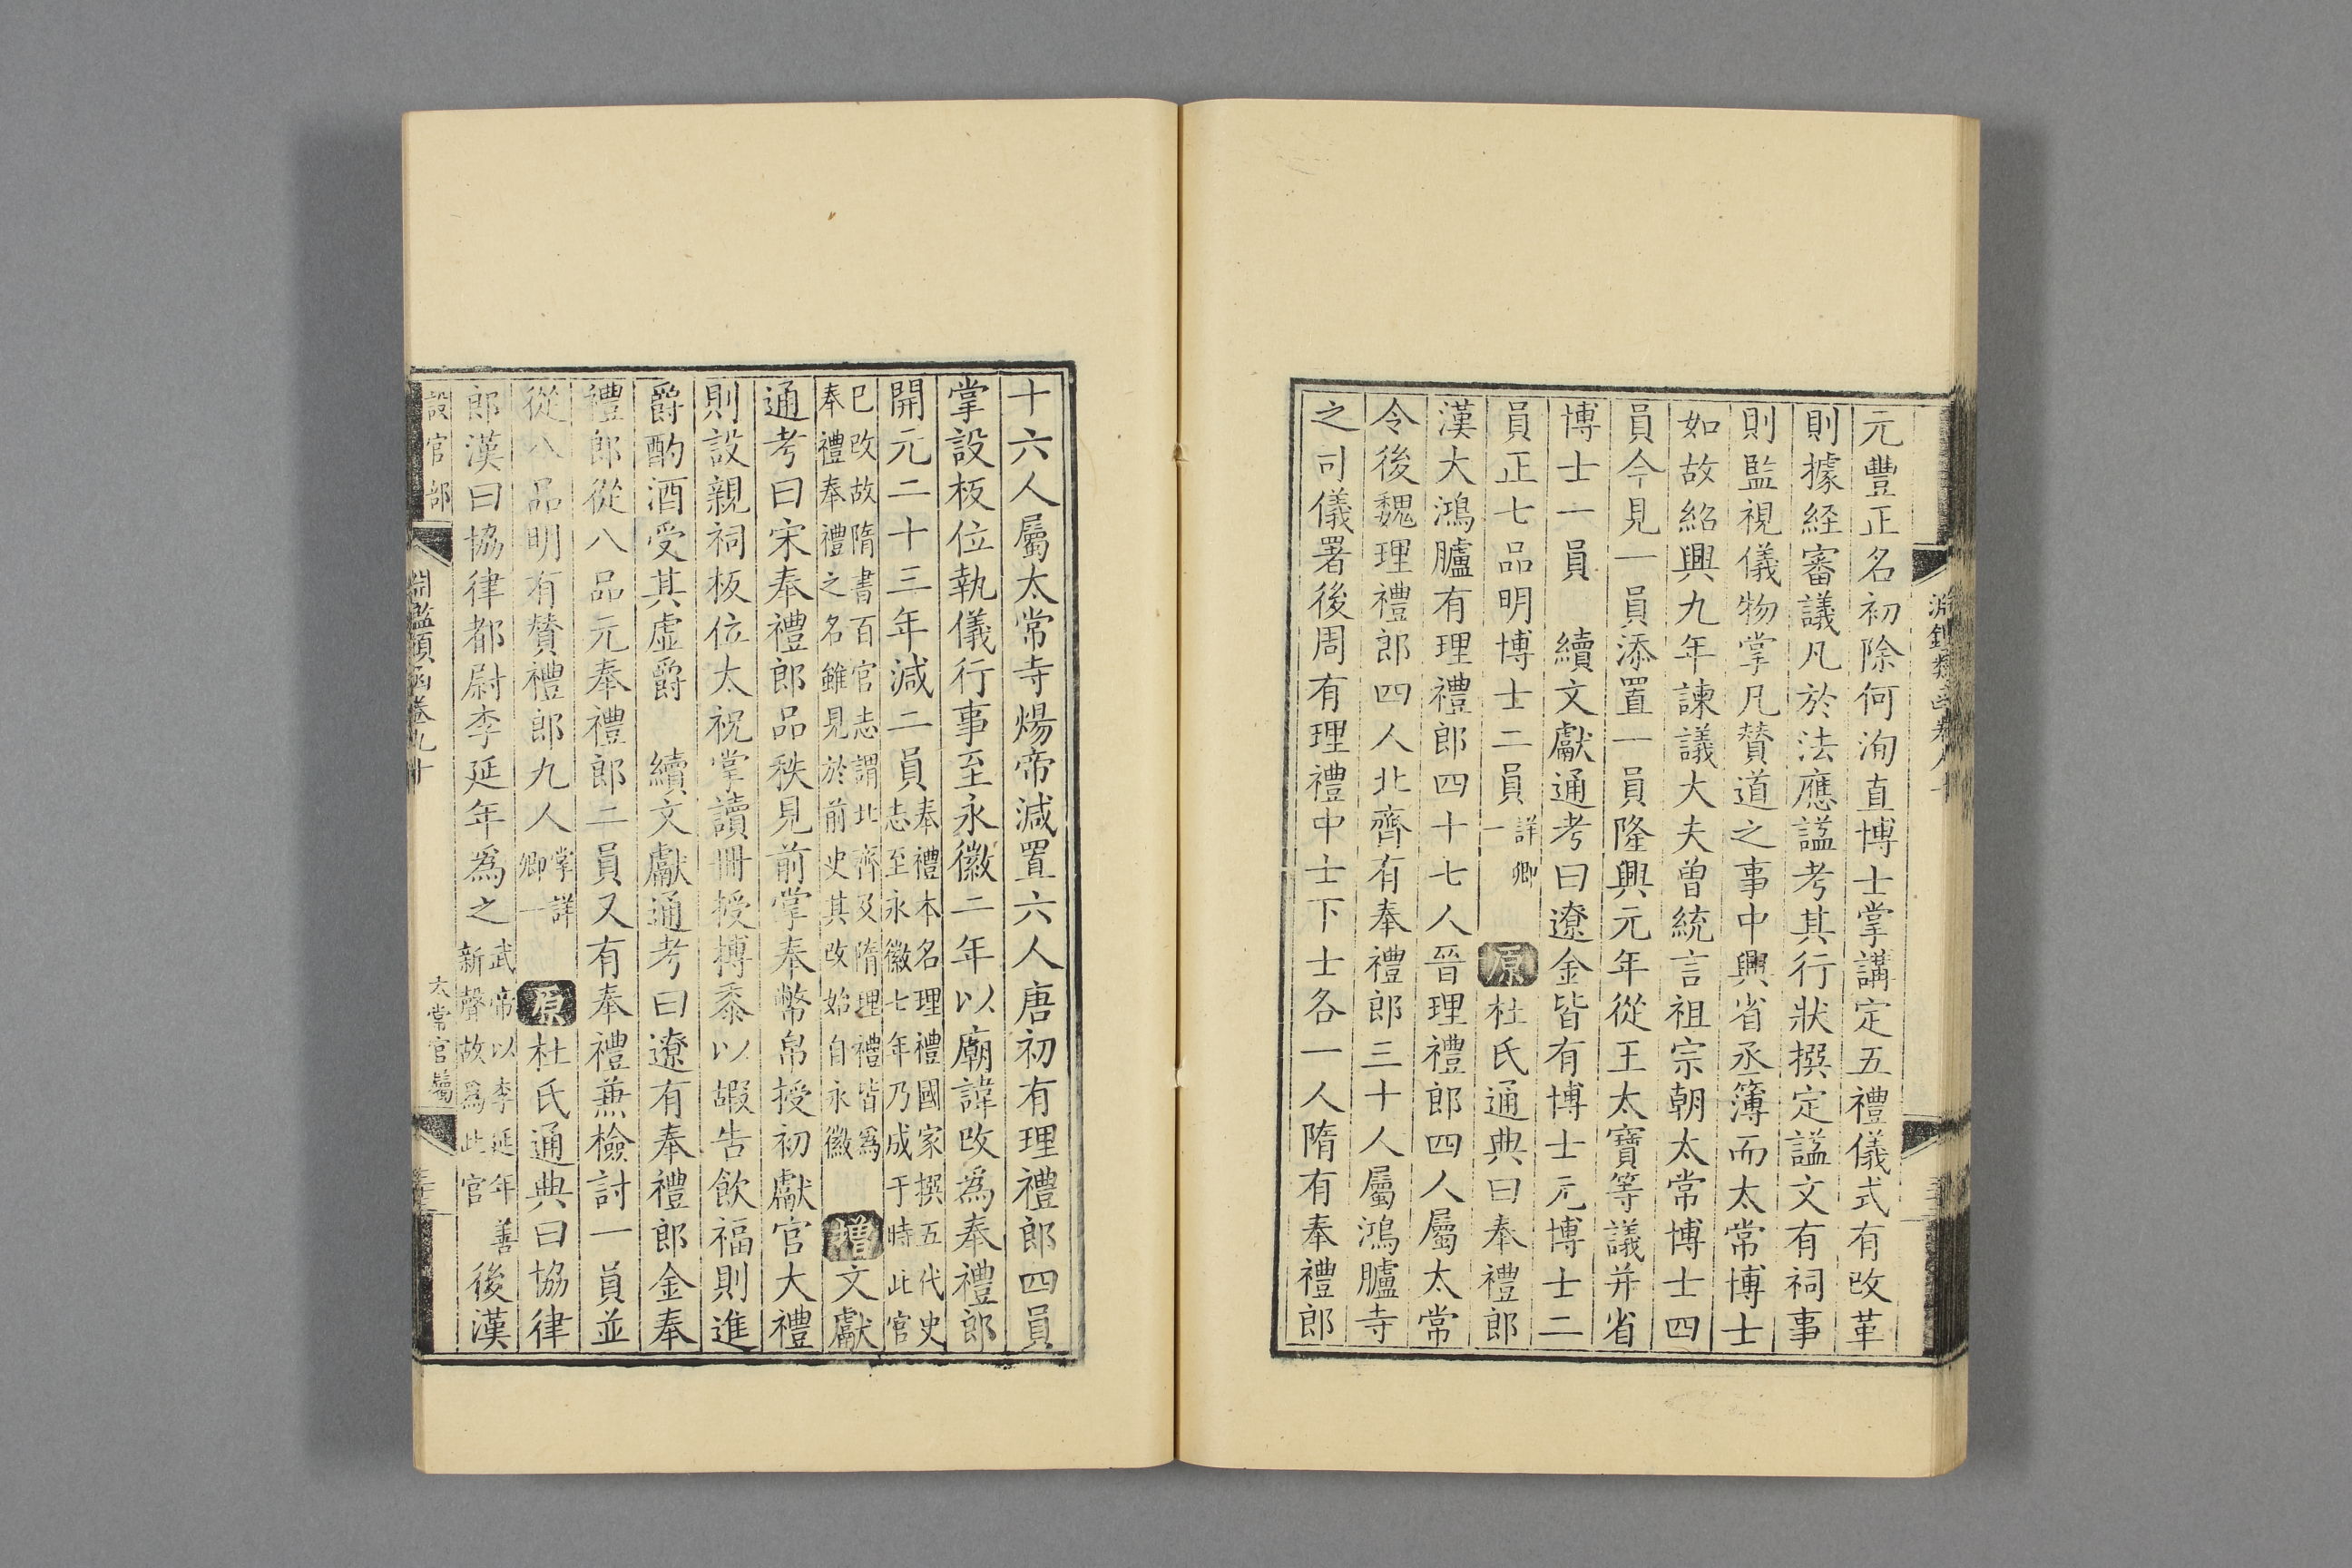 元豐正名初除何洵直博士掌講定五禮儀式有改革
則據経審議凡於法應諡考其行狀撰定諡文有祠事
則監視儀物掌凡贊道之事中興省丞簿而太常博士
如故紹興九年諫議大夫曾統言祖宗朝太常博士四
員今見一員添置一員隆興元年從王太寶等議并省
博士一員　續文獻通考曰遼金皆有博士元博士二
員正七品明博士二員詳卿一　原杜氏通典曰奉禮郎
漢大鴻臚有理禮郎四十七人晉理禮郎四人屬太常
令後魏理禮郎四人北齊有奉禮郎三十人屬鴻臚寺
之司儀署後周有理禮中士下士各一人隋有奉禮郎
十六人屬太常寺煬帝減置六人唐初有理禮郎四員
掌設板位執儀行事至永徽二年以廟諱改為奉禮郎
開元二十三年減二員奉禮本名理禮國家撰五代史志至永徽七年乃成于時此官
已改故隋書百官志謂北齊及隋理禮皆為奉禮奉禮之名雖見於前史其改始自永徽　增文獻
通考曰宋奉禮郎品秩見前掌奉幣帛授初獻官大禮
則設親祠板位太祝掌讀冊授摶黍以嘏告飲福則進
爵酌酒受其虛爵　續文獻通考曰遼有奉禮郎金奉
禮郎從八品元奉禮郎二員又有奉禮兼檢討一員並
從八品明有贊禮郎九人掌詳卿一　原杜氏通典曰協律
郎漢曰協律都尉李延年為之武帝以李延年善新聲故為此官後漢
設官部　淵鑑類函卷九十　太常官屬